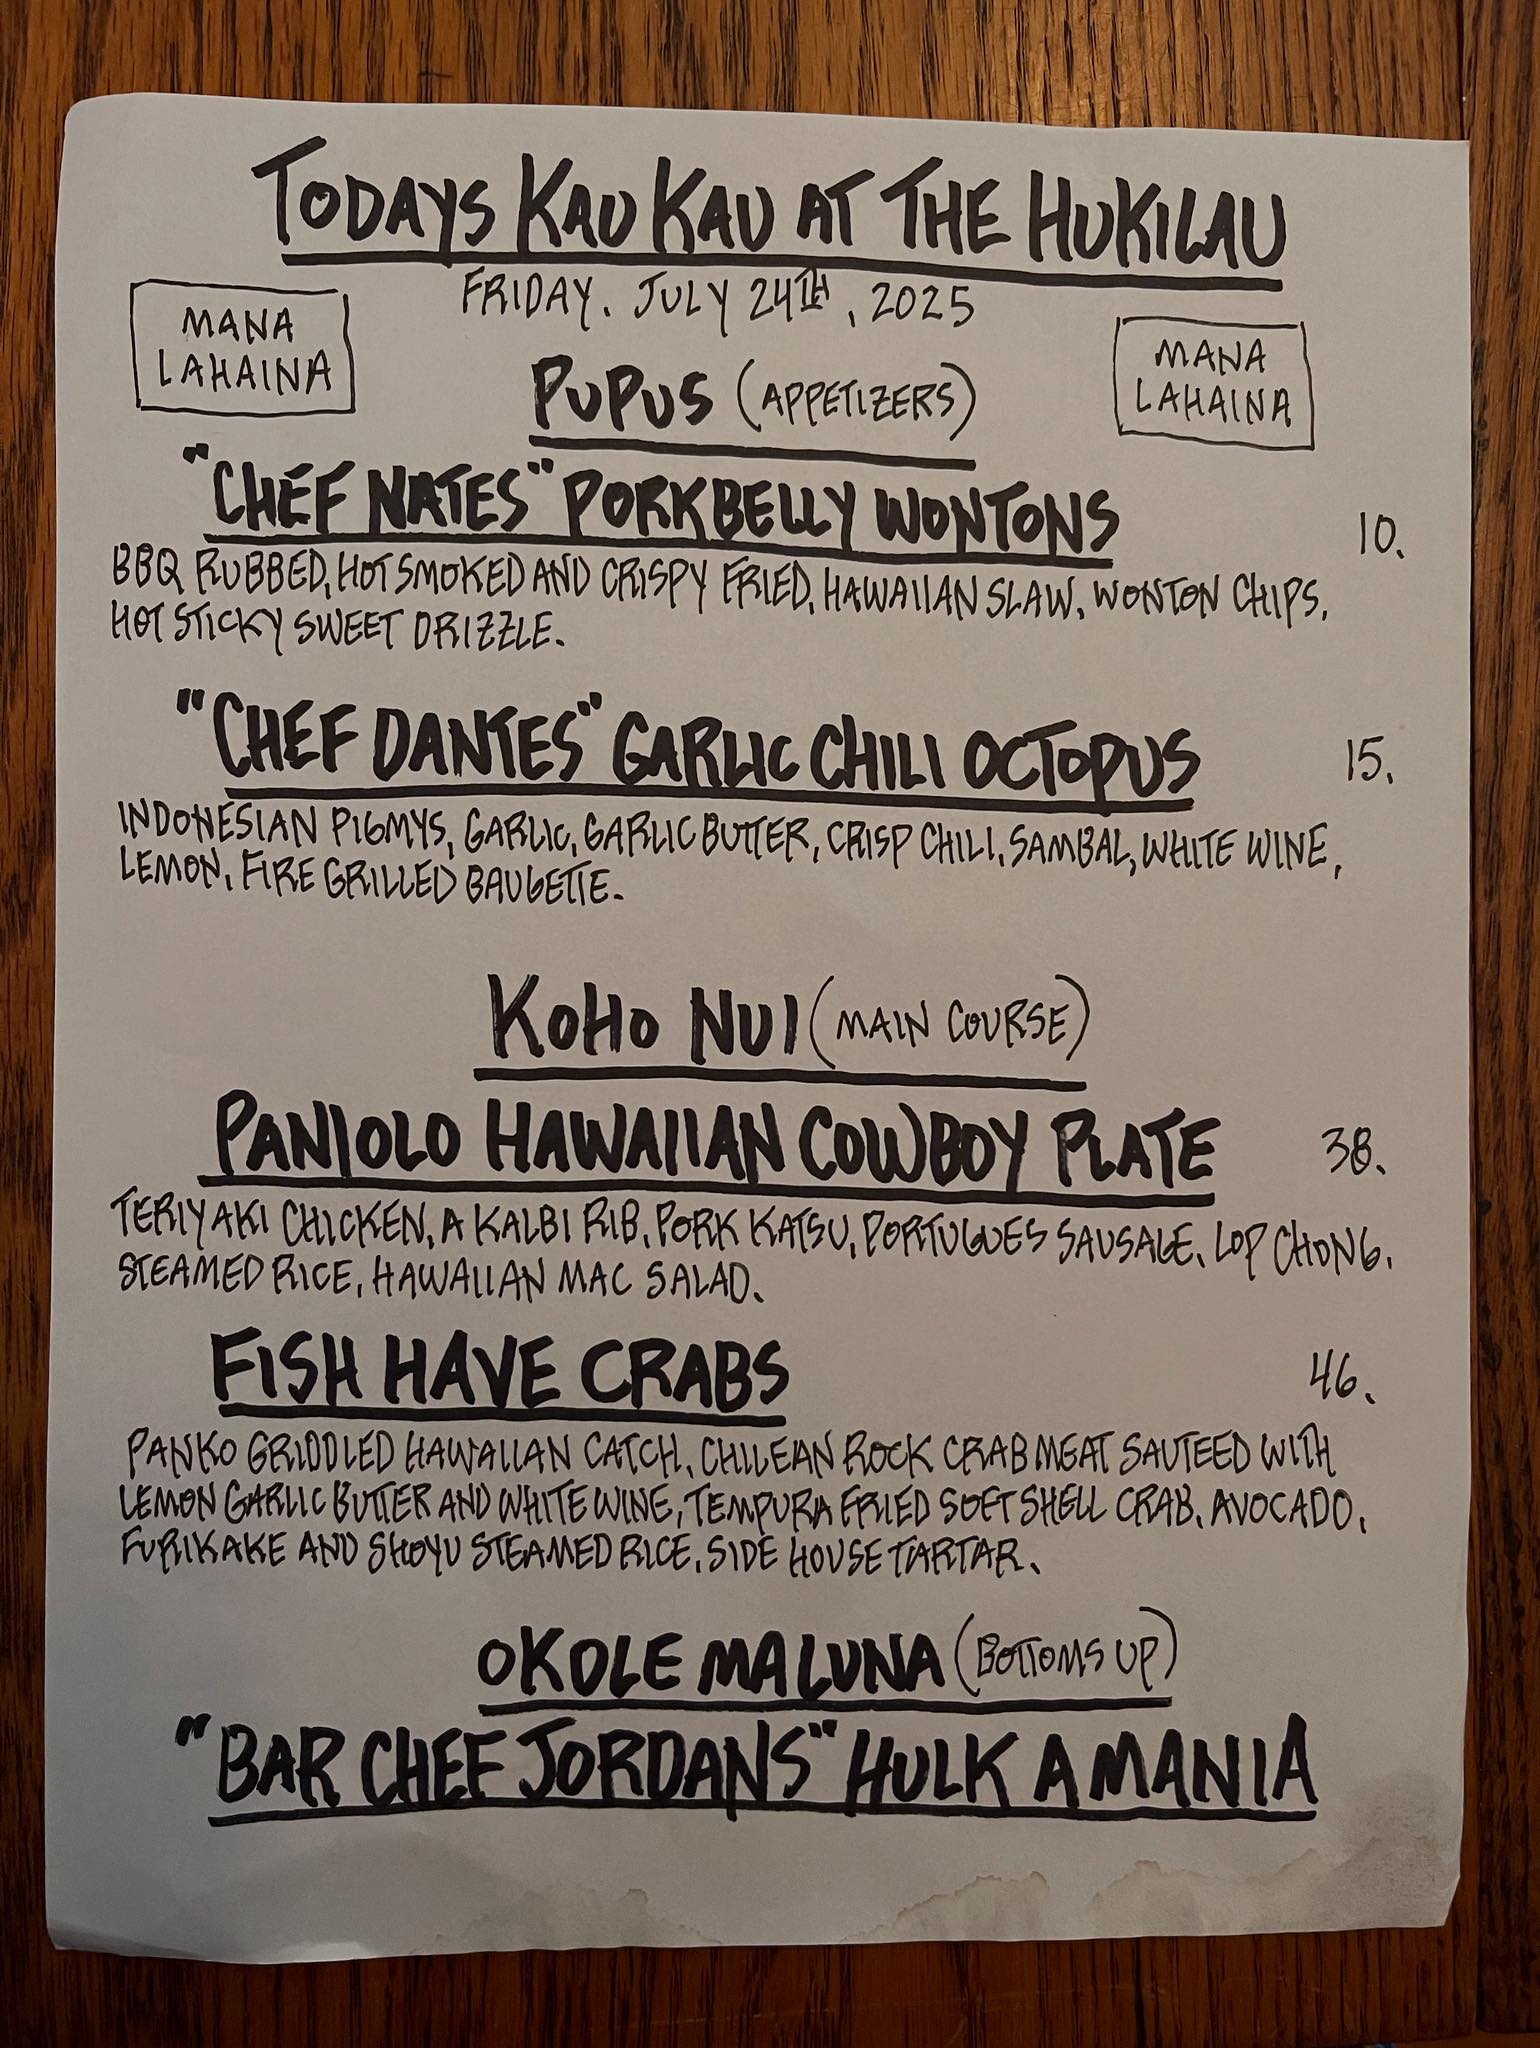 TODAYS KAU KAU AT THE HUKILAU
FRIDAY. JULY 24TH, 2025
MANA
LAHAINA
MANA
LAHAINA
PUPUS (APPETIZERS)
"CHEF NATES" PORKBELLY WONTONS 10.
BBQ RUBBED, HOT SMOKED AND CRISPY FRIED, HAWAIIAN SLAW, WONTON CHIPS,
HOT STICKY SWEET DRIZZLE.
"CHEF DANTES" GARLIC CHILI OCTOPUS 15.
INDONESIAN PIGMYS, GARLIC, GARLIC BUTTER, CRISP CHILI, SAMBAL, WHITE WINE,
LEMON, FIRE GRILLED BAUGETTE.
KOHO NUI (MAIN COURSE)
PANIOLO HAWAIIAN COWBOY PLATE 38.
TERIYAKI CHICKEN, A KALBI RIB, PORK KATSU, PORTUGUES SAUSAGE, LOP CHONG,
STEAMED RICE, HAWAIIAN MAC SALAD.
FISH HAVE CRABS 46.
PANKO GRIDDLED HAWAIIAN CATCH, CHILEAN ROCK CRABMEAT SAUTEED WITH
LEMON GARLIC BUTTER AND WHITE WINE, TEMPURA FRIED SOFT SHELL CRAB, AVOCADO,
FURIKAKE AND SHOYU STEAMED RICE, SIDE HOUSE TARTAR.
OKOLE MALUNA (BOTTOMS UP)
"BAR CHEF JORDANS" HULK A MANIA